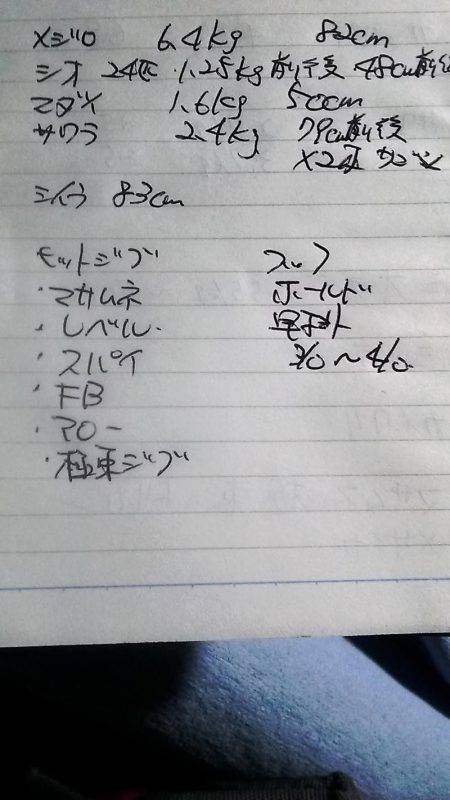 メジロ 6.4kg 82cm
シオ 24匹 1.25kg前後 48cm前後
マダイ 1.6kg 50cm
サワラ 2.4kg 79cm前後
×2本
シイラ 83cm
ヒットジグ フック
・マサムネ ホールド
・レベル
・スパイ 3/0〜4/0
・FB
・アロー
・極東ジグ